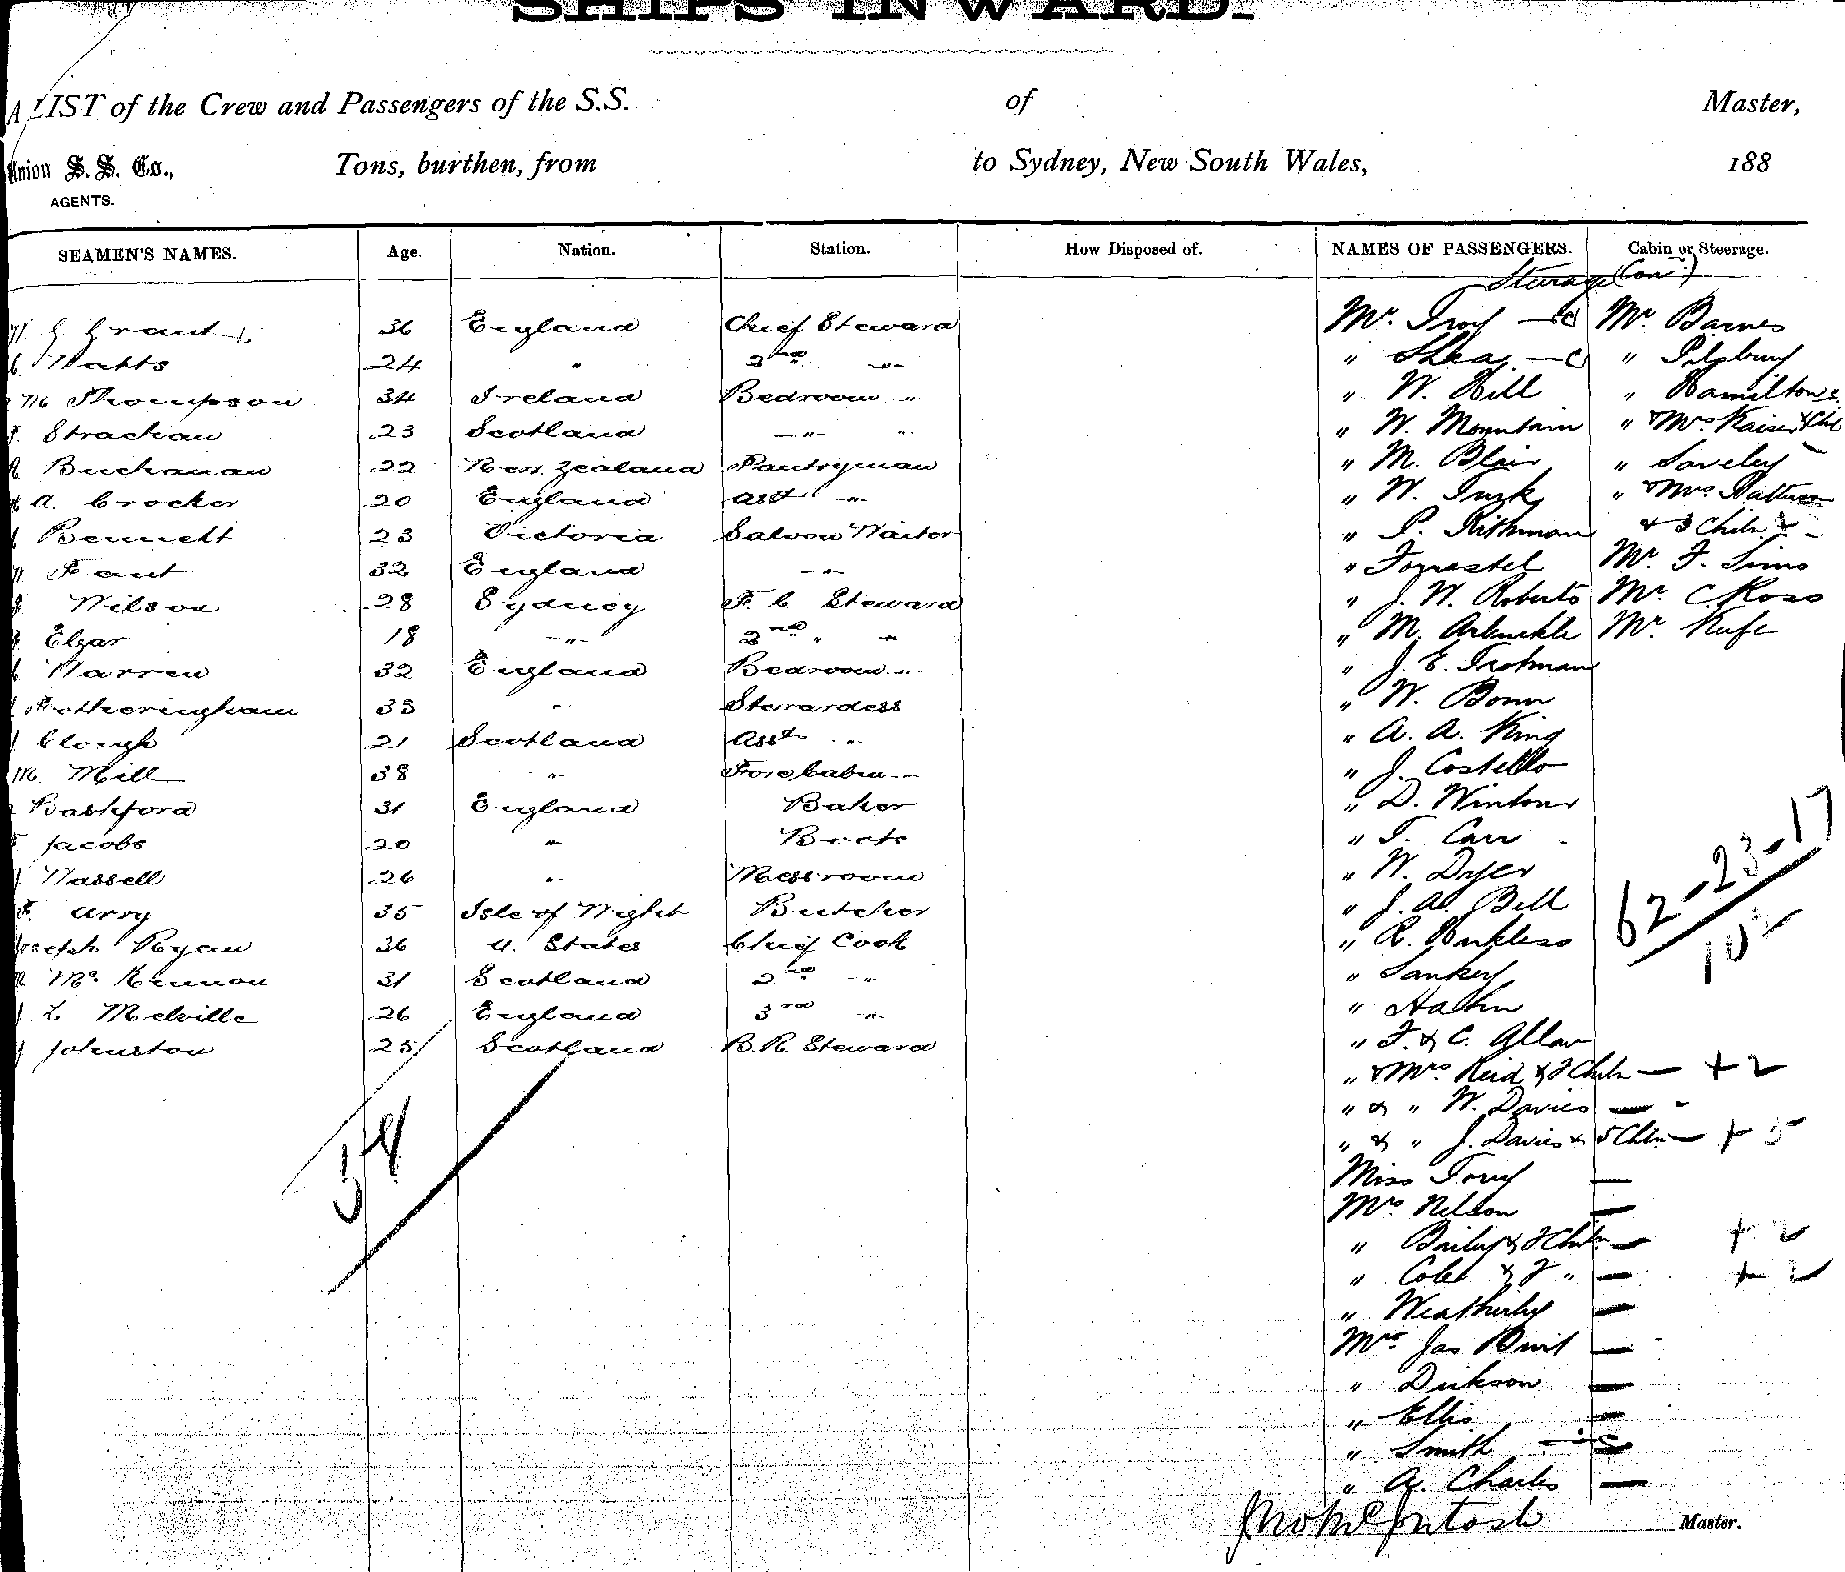 SHIPS INWARD.
A LIST of the Crew and Passengers of the S.S. of Master,
Union S. S. Co., Tons, burthen, from to Sydney, New South Wales, 188
AGENTS.
SEAMEN'S NAMES. Age. Nation. Station. How Disposed of. NAMES OF PASSENGERS. Cabin or Steerage.
Steerage (con)
G Grant 36 England Chief Steward Mr. Troy - C Mr. Barnes
Watts 24 " 2nd -"- " Shea - C " Pilsbury
Thompson 34 Ireland Bedroom " " W. Hill " Hamilton
Strachan 23 Scotland -"- " " W. Mountain " & Mrs Kaiser &
Buchanan 22 New Zealand Pantryman " M. Blair " Loveley
A. Crocker 20 England Asst -"- " W. Tuzk " & Mrs
Bennett 23 Victoria Saloon Waiter " P. Rithman & 3 Chiln
Fant 32 England -"- " Forrestel Mr. F. Sims
Wilson 28 Sydney F. C Steward " J. W. Roberts Mr. C Ross
Elgar 18 -"- 2nd " " " M. Arbuckle Mr.
Warren 32 England Bedroom -"- " J. E. Trotman
Fotheringham 33 " Stewardess " W. Bonn
Clough 21 Scotland Asst -"- " A. A. King
M. Mill 38 " Fore Cabin -"- " J. Costello
Bashford 31 England Baker " D. Winton
Jacobs 20 " Boots " T. Carr
Wassell 26 " Messroom " W. Dyer
Arry 35 Isle of Wight Butcher " J. A. Bell
Joseph Ryan 36 U. States Chief Cook " R.
Mc Kinnon 31 Scotland 2nd -"- " Sankey
L Melville 26 England 3rd -"- " Hahn
Johnston 25 Scotland B. R. Steward " F. & C. Allan
" & Mrs. Reid & 2 Chiln - + 2
" & " W. Davies -
" & " J. Davies & 5 Chiln - + 5
Miss Torry -
Mrs. Nelson -
" Bailey & 2 Chiln - + 2
" Coles & 2 " - + 2
" Weatherby -
Mrs. Jas -
" Dickson -
" Ellis -
" Smith -
" A. Charles -
62-23-17
10
54
Jno McIntosh Master.